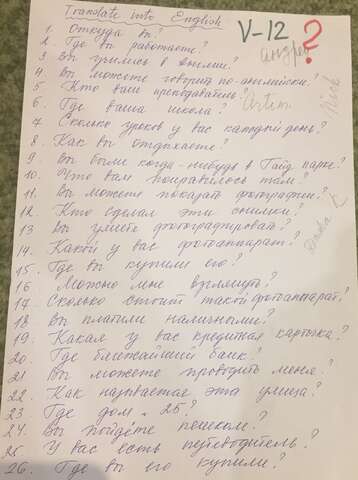 Translate into English
V-12 ?
1. Откуда вы?
Андрей
2. Где вы работаете?
3. Вы учились в Англии?
4. Вы можете говорить по-английски?
Nick
5. Кто ваш преподаватель?
Artim
6. Где ваша школа?
7. Сколько уроков у вас каждый день?
8. Как вы отдыхаете?
9. Вы были когда-нибудь в Гайд парке?
10. Что вам понравилось там?
11. Вы можете показать фотографии?
12. Кто сделал эти снимки?
13. Вы умеете фотографировать?
14. Какой у вас фотоаппарат?
15. Где вы купили его?
16. Можно мне взглянуть?
17. Сколько стоит такой фотоаппарат?
18. Вы платили наличными?
19. Какая у вас кредитная карточка?
20. Где ближайший банк?
21. Вы можете проводить меня?
22. Как называется эта улица?
23. Где дом 25?
24. Вы пойдёте пешком?
25. У вас есть путеводитель?
26. Где вы его купили?